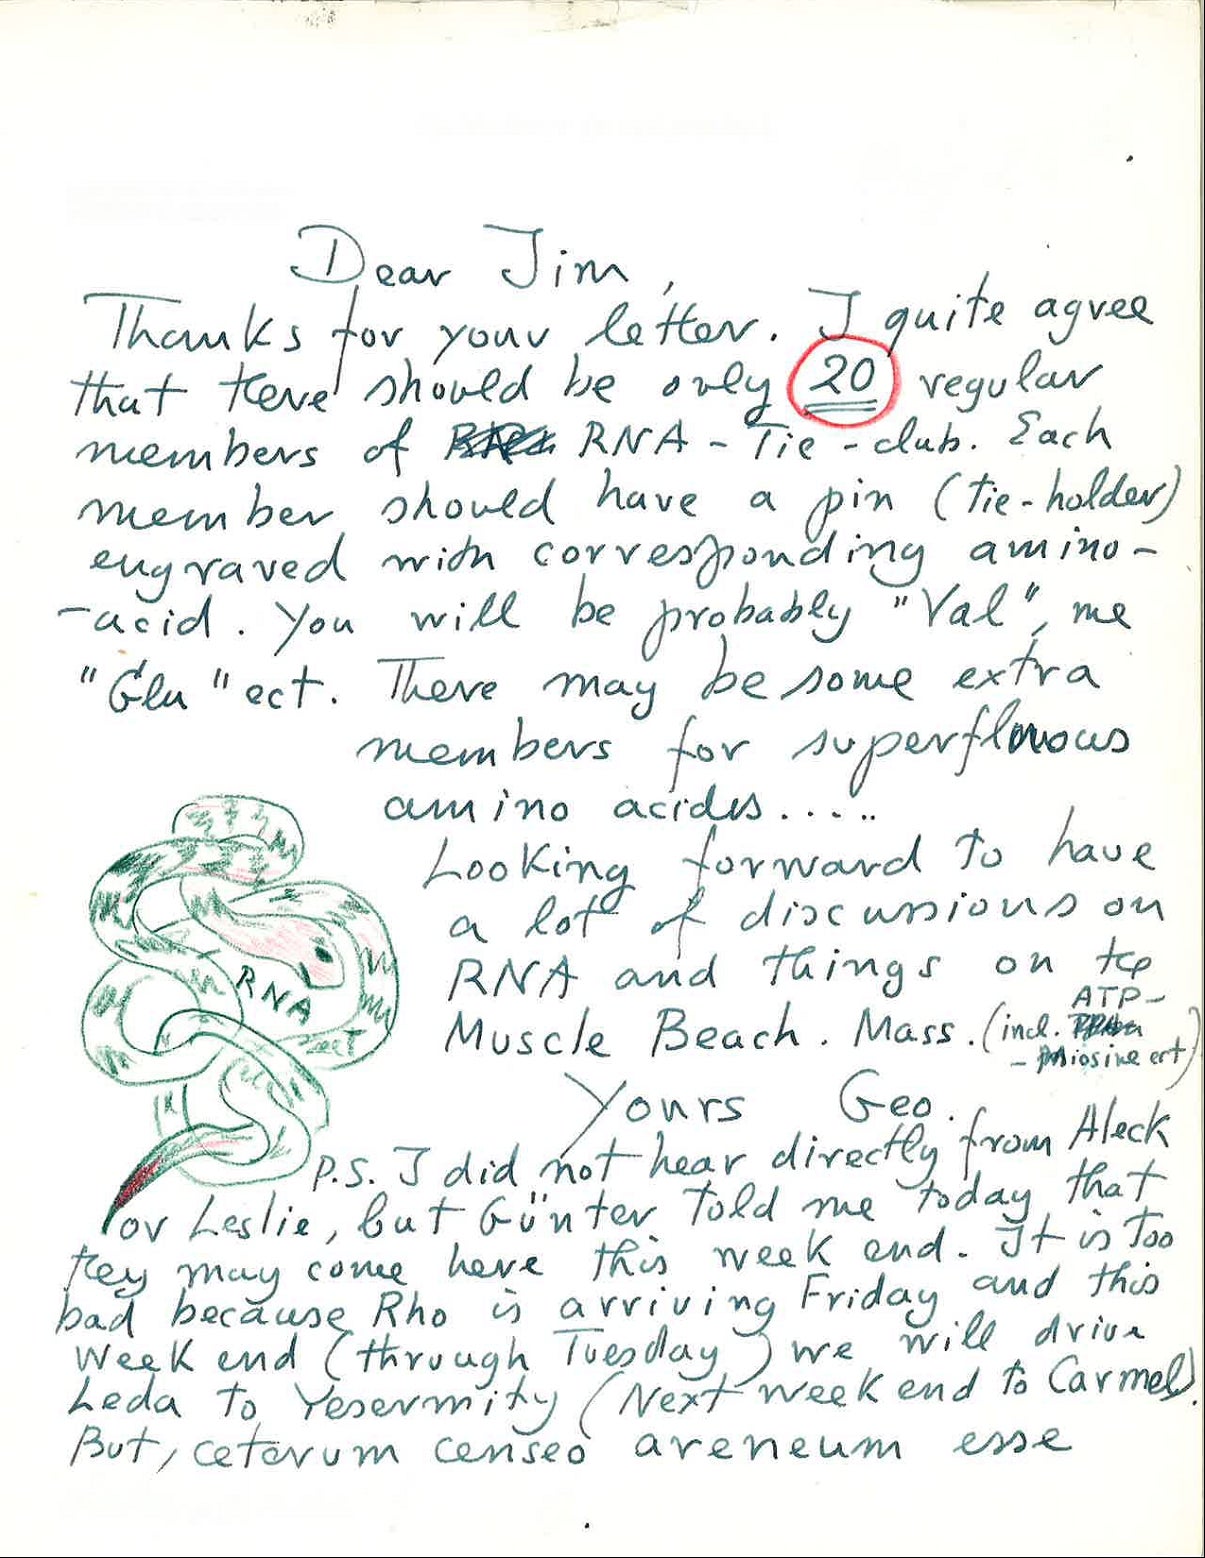 Dear Jim,
Thanks for your letter. I quite agree
that there should be only 20 regular
members of RNA - Tie - club. Each
member should have a pin (tie-holder)
engraved with corresponding amino-
-acid. You will be probably "Val", me
"Glu" ect. There may be some extra
members for superflouous
amino acides.....
Looking forward to have
a lot of discussions on
RNA and things on the
Muscle Beach. Mass. (incl. ATP-
-Miosine ect)
RNA
Yours Geo.
P.S. I did not hear directly from Aleck
or Leslie, but Günter told me today that
they may come here this week end. It is too
bad because Rho is arriving Friday and this
week end (through Tuesday) we will drive
Leda to Yesermity (Next week end to Carmel).
But, ceterum censeo areneum esse